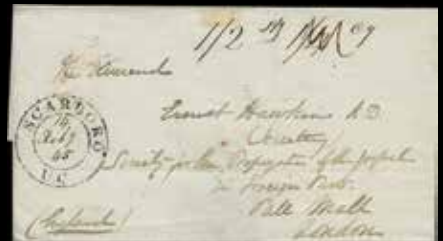 1/2
The Reverend
Ernest Hawkins
Secretary
Society for the Propagation of the Gospel
in Foreign Parts
Pall Mall
London
(England)
SCARBORO
U.C